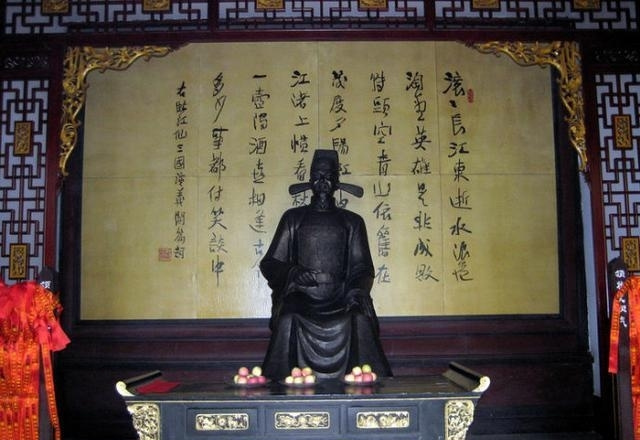 滚〻長江東逝水浪花
淘盡英雄是非成敗
轉頭空青山依舊在
幾度夕陽紅白
江渚上慣看秋
一壺濁酒喜相逢古今
多少事都付笑談中
右臨江仙三國演義開篇詞